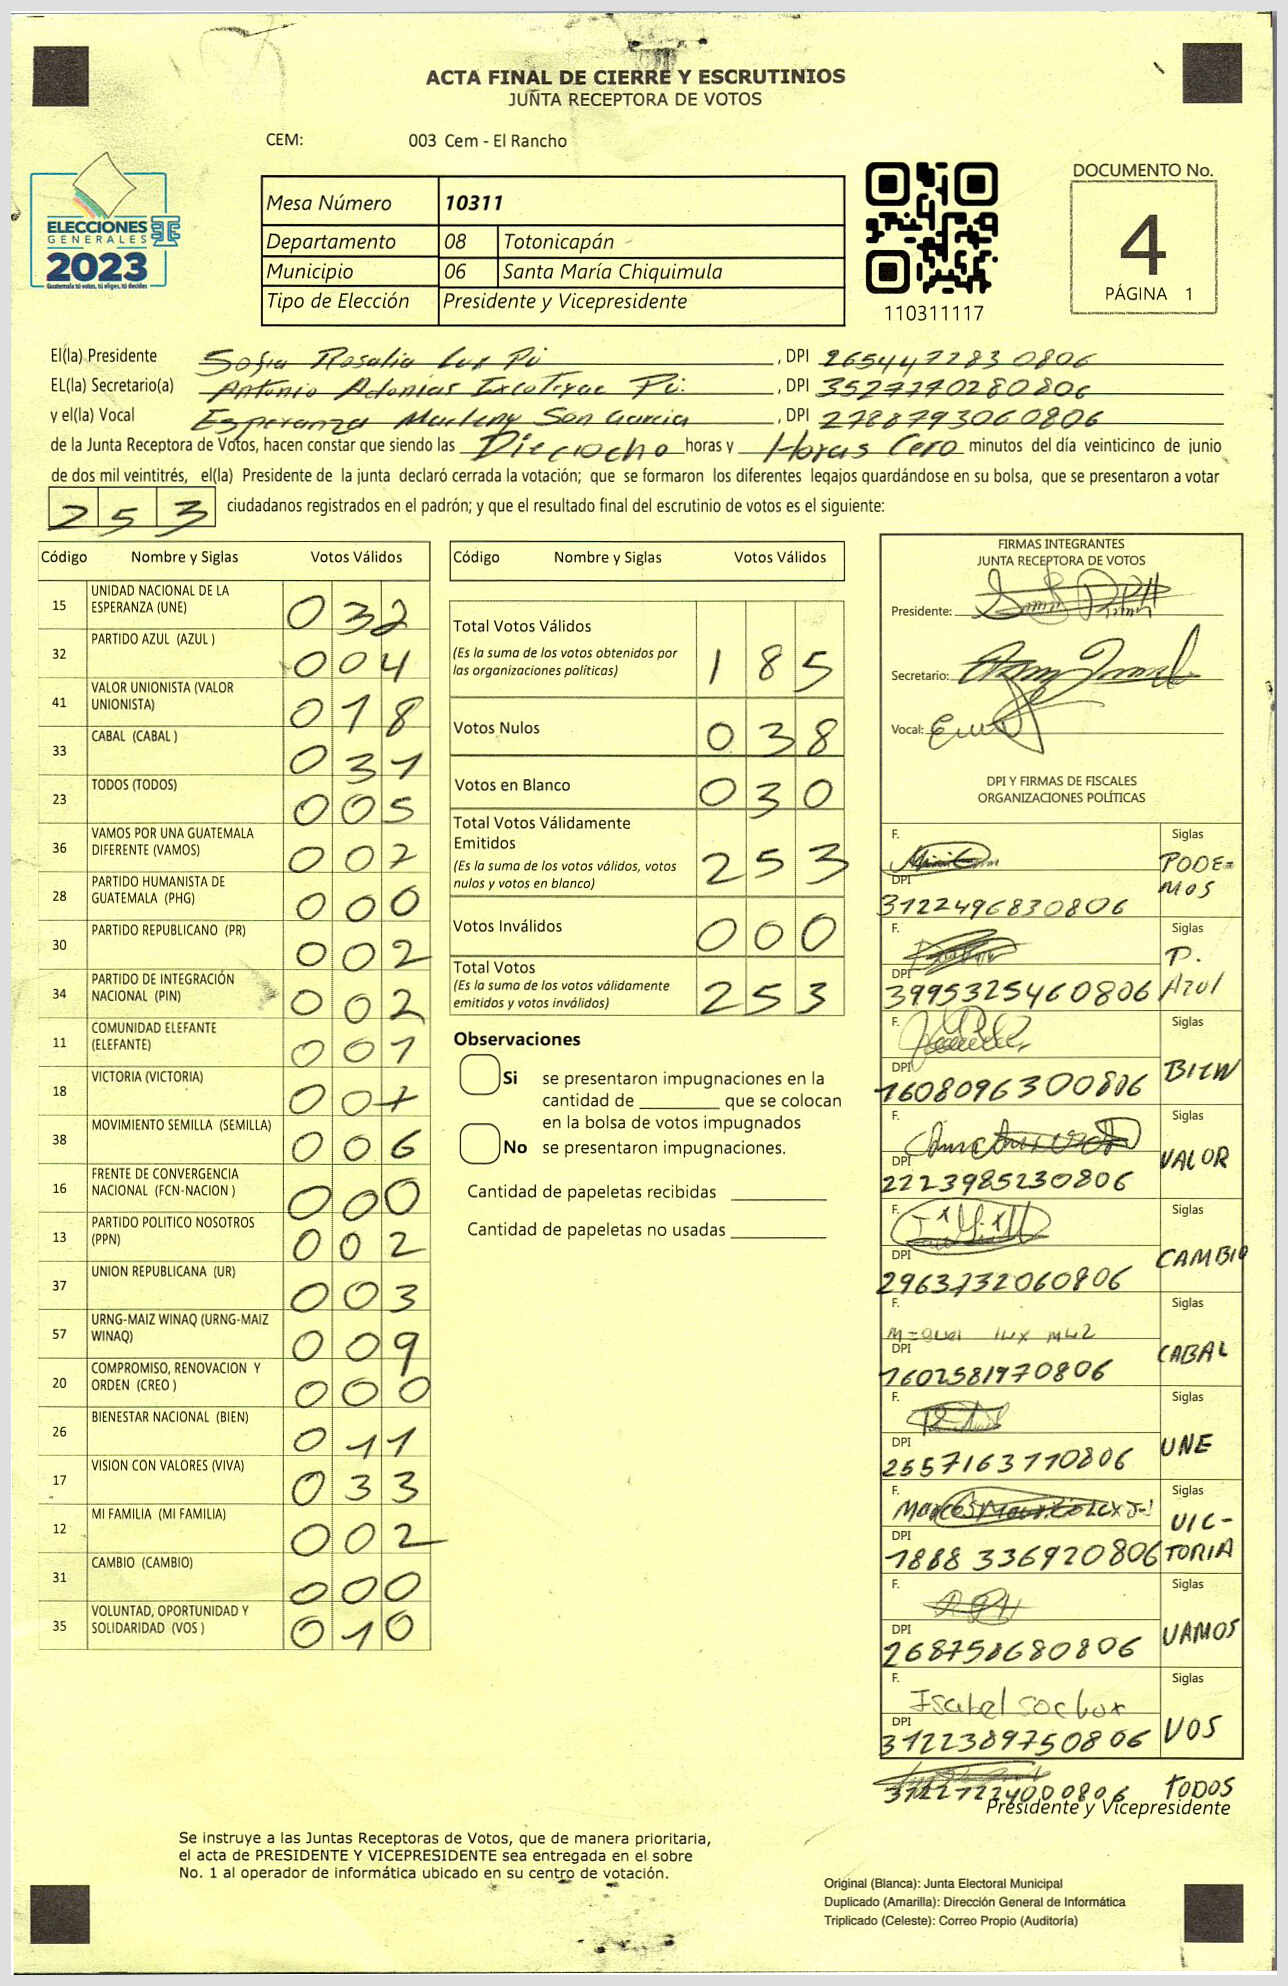 ACTA FINAL DE CIERRE Y ESCRUTINIOS
JUNTA RECEPTORA DE VOTOS
CEM: 003 Cem - El Rancho
ELECCIONES
GENERALES
2023
Guatemala tú votas, tú eliges, tú decides
Mesa Número 10311
Departamento 08 Totonicapán
Municipio 06 Santa María Chiquimula
Tipo de Elección Presidente y Vicepresidente
110311117
DOCUMENTO No.
4
PÁGINA 1
El(la) Presidente Sofia Rosalia Lux Pú , DPI 2654472830806
EL(la) Secretario(a) Antonio Adonias Pú. , DPI 3527770280806
y el(la) Vocal Esperanza Marleny Son Garcia , DPI 2788793060806
de la Junta Receptora de Votos, hacen constar que siendo las Dieciocho horas y Horas Cero minutos del día veinticinco de junio
de dos mil veintitrés, el(la) Presidente de la junta declaró cerrada la votación; que se formaron los diferentes legajos guardándose en su bolsa, que se presentaron a votar
253 ciudadanos registrados en el padrón; y que el resultado final del escrutinio de votos es el siguiente:
Código Nombre y Siglas Votos Válidos
15 UNIDAD NACIONAL DE LA ESPERANZA (UNE) 032
32 PARTIDO AZUL (AZUL ) 004
41 VALOR UNIONISTA (VALOR UNIONISTA) 018
33 CABAL (CABAL ) 031
23 TODOS (TODOS) 005
36 VAMOS POR UNA GUATEMALA DIFERENTE (VAMOS) 007
28 PARTIDO HUMANISTA DE GUATEMALA (PHG) 000
30 PARTIDO REPUBLICANO (PR) 002
34 PARTIDO DE INTEGRACIÓN NACIONAL (PIN) 002
11 COMUNIDAD ELEFANTE (ELEFANTE) 001
18 VICTORIA (VICTORIA) 007
38 MOVIMIENTO SEMILLA (SEMILLA) 006
16 FRENTE DE CONVERGENCIA NACIONAL (FCN-NACION ) 000
13 PARTIDO POLITICO NOSOTROS (PPN) 002
37 UNION REPUBLICANA (UR) 003
57 URNG-MAIZ WINAQ (URNG-MAIZ WINAQ) 009
20 COMPROMISO, RENOVACION Y ORDEN (CREO ) 000
26 BIENESTAR NACIONAL (BIEN) 011
17 VISION CON VALORES (VIVA) 033
12 MI FAMILIA (MI FAMILIA) 002
31 CAMBIO (CAMBIO) 000
35 VOLUNTAD, OPORTUNIDAD Y SOLIDARIDAD (VOS ) 010
Código Nombre y Siglas Votos Válidos
Total Votos Válidos
(Es la suma de los votos obtenidos por las organizaciones políticas) 185
Votos Nulos 038
Votos en Blanco 030
Total Votos Válidamente Emitidos
(Es la suma de los votos válidos, votos nulos y votos en blanco) 253
Votos Inválidos 000
Total Votos
(Es la suma de los votos válidamente emitidos y votos inválidos) 253
Observaciones
Si se presentaron impugnaciones en la
cantidad de ________ que se colocan
en la bolsa de votos impugnados
No se presentaron impugnaciones.
Cantidad de papeletas recibidas
Cantidad de papeletas no usadas
FIRMAS INTEGRANTES
JUNTA RECEPTORA DE VOTOS
Presidente:
Secretario:
Vocal:
DPI Y FIRMAS DE FISCALES
ORGANIZACIONES POLÍTICAS
F. Siglas
DPI PODE=MOS
3122496830806
F. Siglas
DPI P. Azul
3995325460806
F. Siglas
DPI BIEN
1608096300806
F. Siglas
DPI VALOR
2223985230806
F. Siglas
DPI CAMBIO
2963732060806
F. Siglas
DPI CABAL
1602581970806
F. Siglas
DPI UNE
2557163110806
F. Siglas
DPI VIC-TORIA
1888 336920806
F. Siglas
DPI VAMOS
268758680806
F. Isabel Siglas
DPI VOS
3122389750806
31227224000806 TODOS
Presidente y Vicepresidente
Se instruye a las Juntas Receptoras de Votos, que de manera prioritaria,
el acta de PRESIDENTE Y VICEPRESIDENTE sea entregada en el sobre
No. 1 al operador de informática ubicado en su centro de votación.
Original (Blanca): Junta Electoral Municipal
Duplicado (Amarilla): Dirección General de Informática
Triplicado (Celeste): Correo Propio (Auditoría)